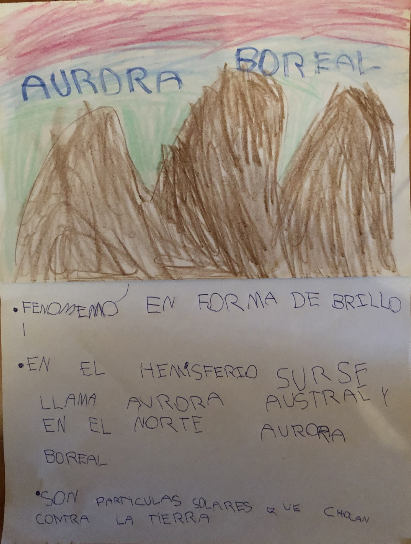 AURORA BOREAL
• FENOMEMO EN FORMA DE BRILLO
• EN EL HEMISFERIO SUR SE
LLAMA AURORA AUSTRAL Y
EN EL NORTE AURORA
BOREAL
• SON PARTICULAS SOLARES QUE CHOCAN
CONTRA LA TIERRA